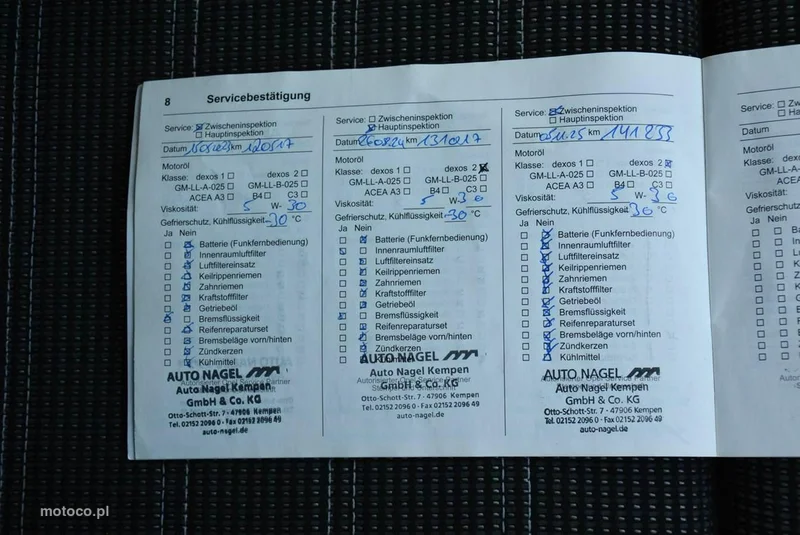 8 Servicebestätigung
Service: ☒ Zwischeninspektion
☐ Hauptinspektion
Datum 150523 km 120517
Motoröl
Klasse: dexos 1 ☐ dexos 2 ☐
GM-LL-A-025 ☐ GM-LL-B-025 ☐
ACEA A3 ☐ B4 ☐ C3 ☐
Viskosität: 5 W- 30
Gefrierschutz, Kühlflüssigkeit -30 °C
Ja Nein
Batterie (Funkfernbedienung)
Innenraumluftfilter
Luftfiltereinsatz
Keilrippenriemen
Zahnriemen
Kraftstofffilter
Getriebeöl
Bremsflüssigkeit
Reifenreparaturset
Bremsbeläge vorn/hinten
Zündkerzen
Kühlmittel
AUTO NAGEL
Autorisierter Opel Service Partner
Auto Nagel Kempen
GmbH & Co. KG
Otto-Schott-Str. 7 · 47906 Kempen
Tel. 02152 2096 0 · Fax 02152 2096 49
auto-nagel.de
Service: ☐ Zwischeninspektion
☒ Hauptinspektion
Datum km 131027
Motoröl
Klasse: dexos 1 ☐ dexos 2 ☒
GM-LL-A-025 ☐ GM-LL-B-025 ☐
ACEA A3 ☐ B4 ☐ C3 ☐
Viskosität: 5 W- 30
Gefrierschutz, Kühlflüssigkeit -30 °C
Ja Nein
Batterie (Funkfernbedienung)
Innenraumluftfilter
Luftfiltereinsatz
Keilrippenriemen
Zahnriemen
Kraftstofffilter
Getriebeöl
Bremsflüssigkeit
Reifenreparaturset
Bremsbeläge vorn/hinten
Zündkerzen
AUTO NAGEL
Autorisierter Opel Service Partner
Auto Nagel Kempen
GmbH & Co. KG
Otto-Schott-Str. 7 · 47906 Kempen
Tel. 02152 2096 0 · Fax 02152 2096 49
auto-nagel.de
Service: ☒ Zwischeninspektion
☐ Hauptinspektion
Datum 05.11.25 km 141 233
Motoröl
Klasse: dexos 1 ☐ dexos 2 ☒
GM-LL-A-025 ☐ GM-LL-B-025 ☐
ACEA A3 ☐ B4 ☐ C3 ☐
Viskosität: 5 W- 30
Gefrierschutz, Kühlflüssigkeit 30 °C
Ja Nein
Batterie (Funkfernbedienung)
Innenraumluftfilter
Luftfiltereinsatz
Keilrippenriemen
Zahnriemen
Kraftstofffilter
Getriebeöl
Bremsflüssigkeit
Reifenreparaturset
Bremsbeläge vorn/hinten
Zündkerzen
Kühlmittel
AUTO NAGEL
Autorisierter Opel Service Partner
Auto Nagel Kempen
GmbH & Co. KG
Otto-Schott-Str. 7 · 47906 Kempen
Tel. 02152 2096 0 · Fax 02152 2096 49
auto-nagel.de
Service: ☐ Zw
☐ Ha
Datum
Motoröl
Klasse: de
GM-LL-A
ACE
Viskosität:
Gefrierschutz,
Ja Nein
Ba
In
Lu
Ke
Za
Kr
Ge
Br
Re
Br
Zü
Kü
motoco.pl